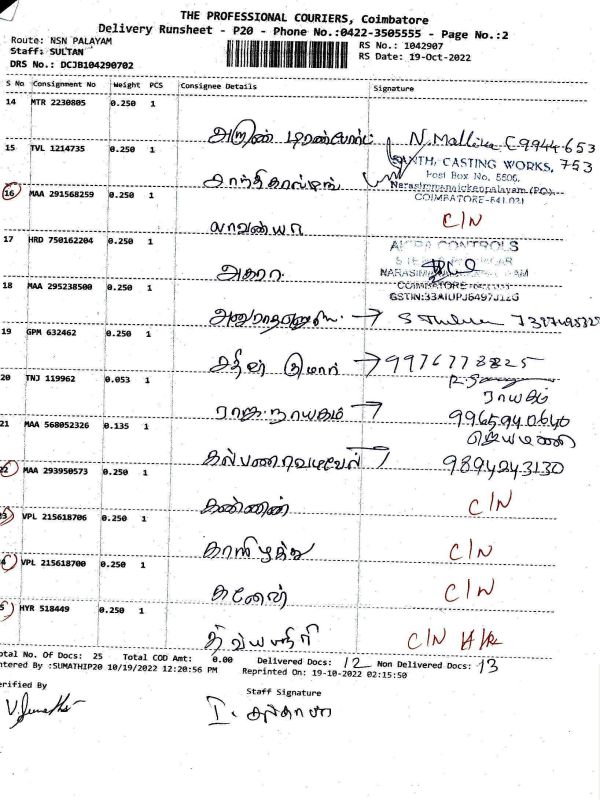 THE PROFESSIONAL COURIERS, Coimbatore
Delivery Runsheet - P20 - Phone No.:0422-3505555 - Page No.:2
Route: NSN PALAYAM
RS No.: 1042907
Staff: SULTAN
RS Date: 19-Oct-2022
DRS No.: DCJB104290702
S No Consignment No Weight PCS Consignee Details Signature
14 MTR 2230805 0.250 1
அருண் டிரான்ஸ்போர்ட் N. Mallika (9944653
753
15 TVL 1214735 0.250 1
SANTHI CASTING WORKS,
Post Box No. 5506,
சாந்தி காஸ்டிங் Narasimmanaickenpalayam (PO)
COIMBATORE-641 031
16 MAA 291568259 0.250 1
லாவண்யா C/N
17 HRD 750162204 0.250 1
CONTROLS
அகரா
COIMBATORE
GSTIN:33AIUPJ6497J1ZG
18 MAA 295238500 0.250 1
19 GPM 632462 0.250 1
சதீஸ் குமார் → 9976778825
20 TNJ 119962 0.053 1
நாயகம்
ராஜ நாயகம் → 9965940640
21 MAA 568052326 0.135 1
ஜெயமணி
கல்பனா வடிவேல் 9894243130
22 MAA 293950573 0.250 1
கண்ணன் C/N
23 VPL 215618706 0.250 1
காளிமுத்து C/N
24 VPL 215618700 0.250 1
கணேஷ் C/N
25 HYR 518449 0.250 1
திவ்யஸ்ரீ C/N
Total No. Of Docs: 25 Total COD Amt: 0.00 Delivered Docs: 12 Non Delivered Docs: 13
Entered By :SUMATHIP20 10/19/2022 12:20:56 PM Reprinted On: 19-10-2022 02:15:50
Verified By
Staff Signature